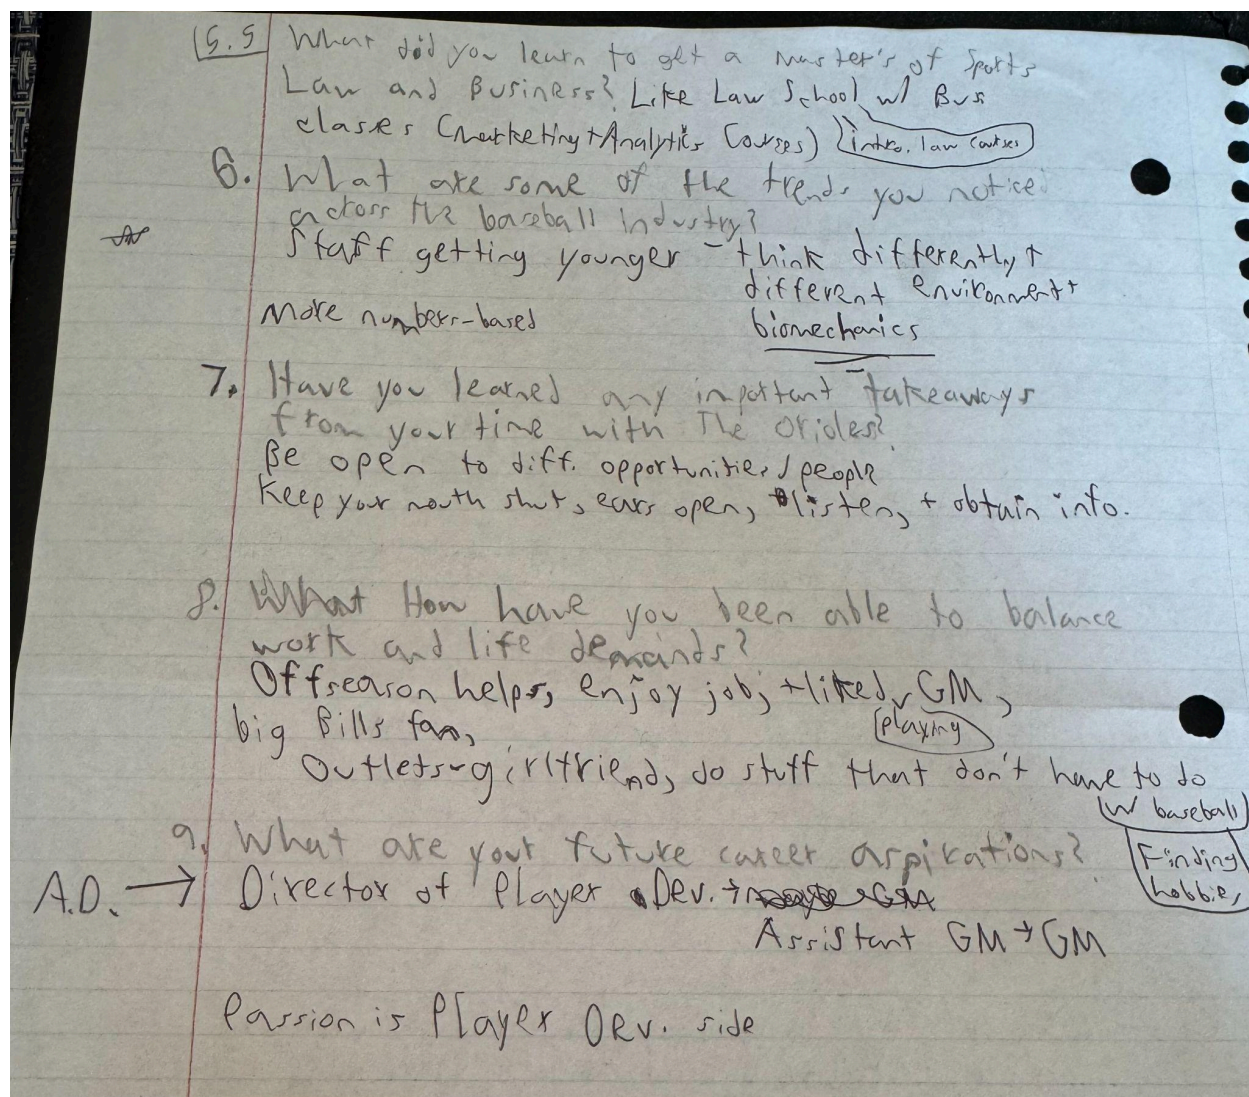 5.5 What did you learn to get a master's of Sports
Law and Business? Like Law School w/ Bus
classes (marketing + Analytics Courses) (intro. law courses
6. What are some of the trends you notice
across the baseball industry?
Staff getting younger - think differently +
different environment +
More numbers-based
biomechanics
7. Have you learned any important takeaways
from your time with The Orioles?
Be open to diff. opportunities / people
Keep your mouth shut, ears open, listen, + obtain info.
8. What How have you been able to balance
work and life demands?
Offseason helps, enjoy job, + liked GM,
playing
big Bills fan,
Outlets - girlfriend, do stuff that don't have to do
w/ baseball
Finding
hobbies
9. What are your future career aspirations?
A.D. → Director of Player Dev. →
Assistant GM → GM
Passion is Player Dev. side